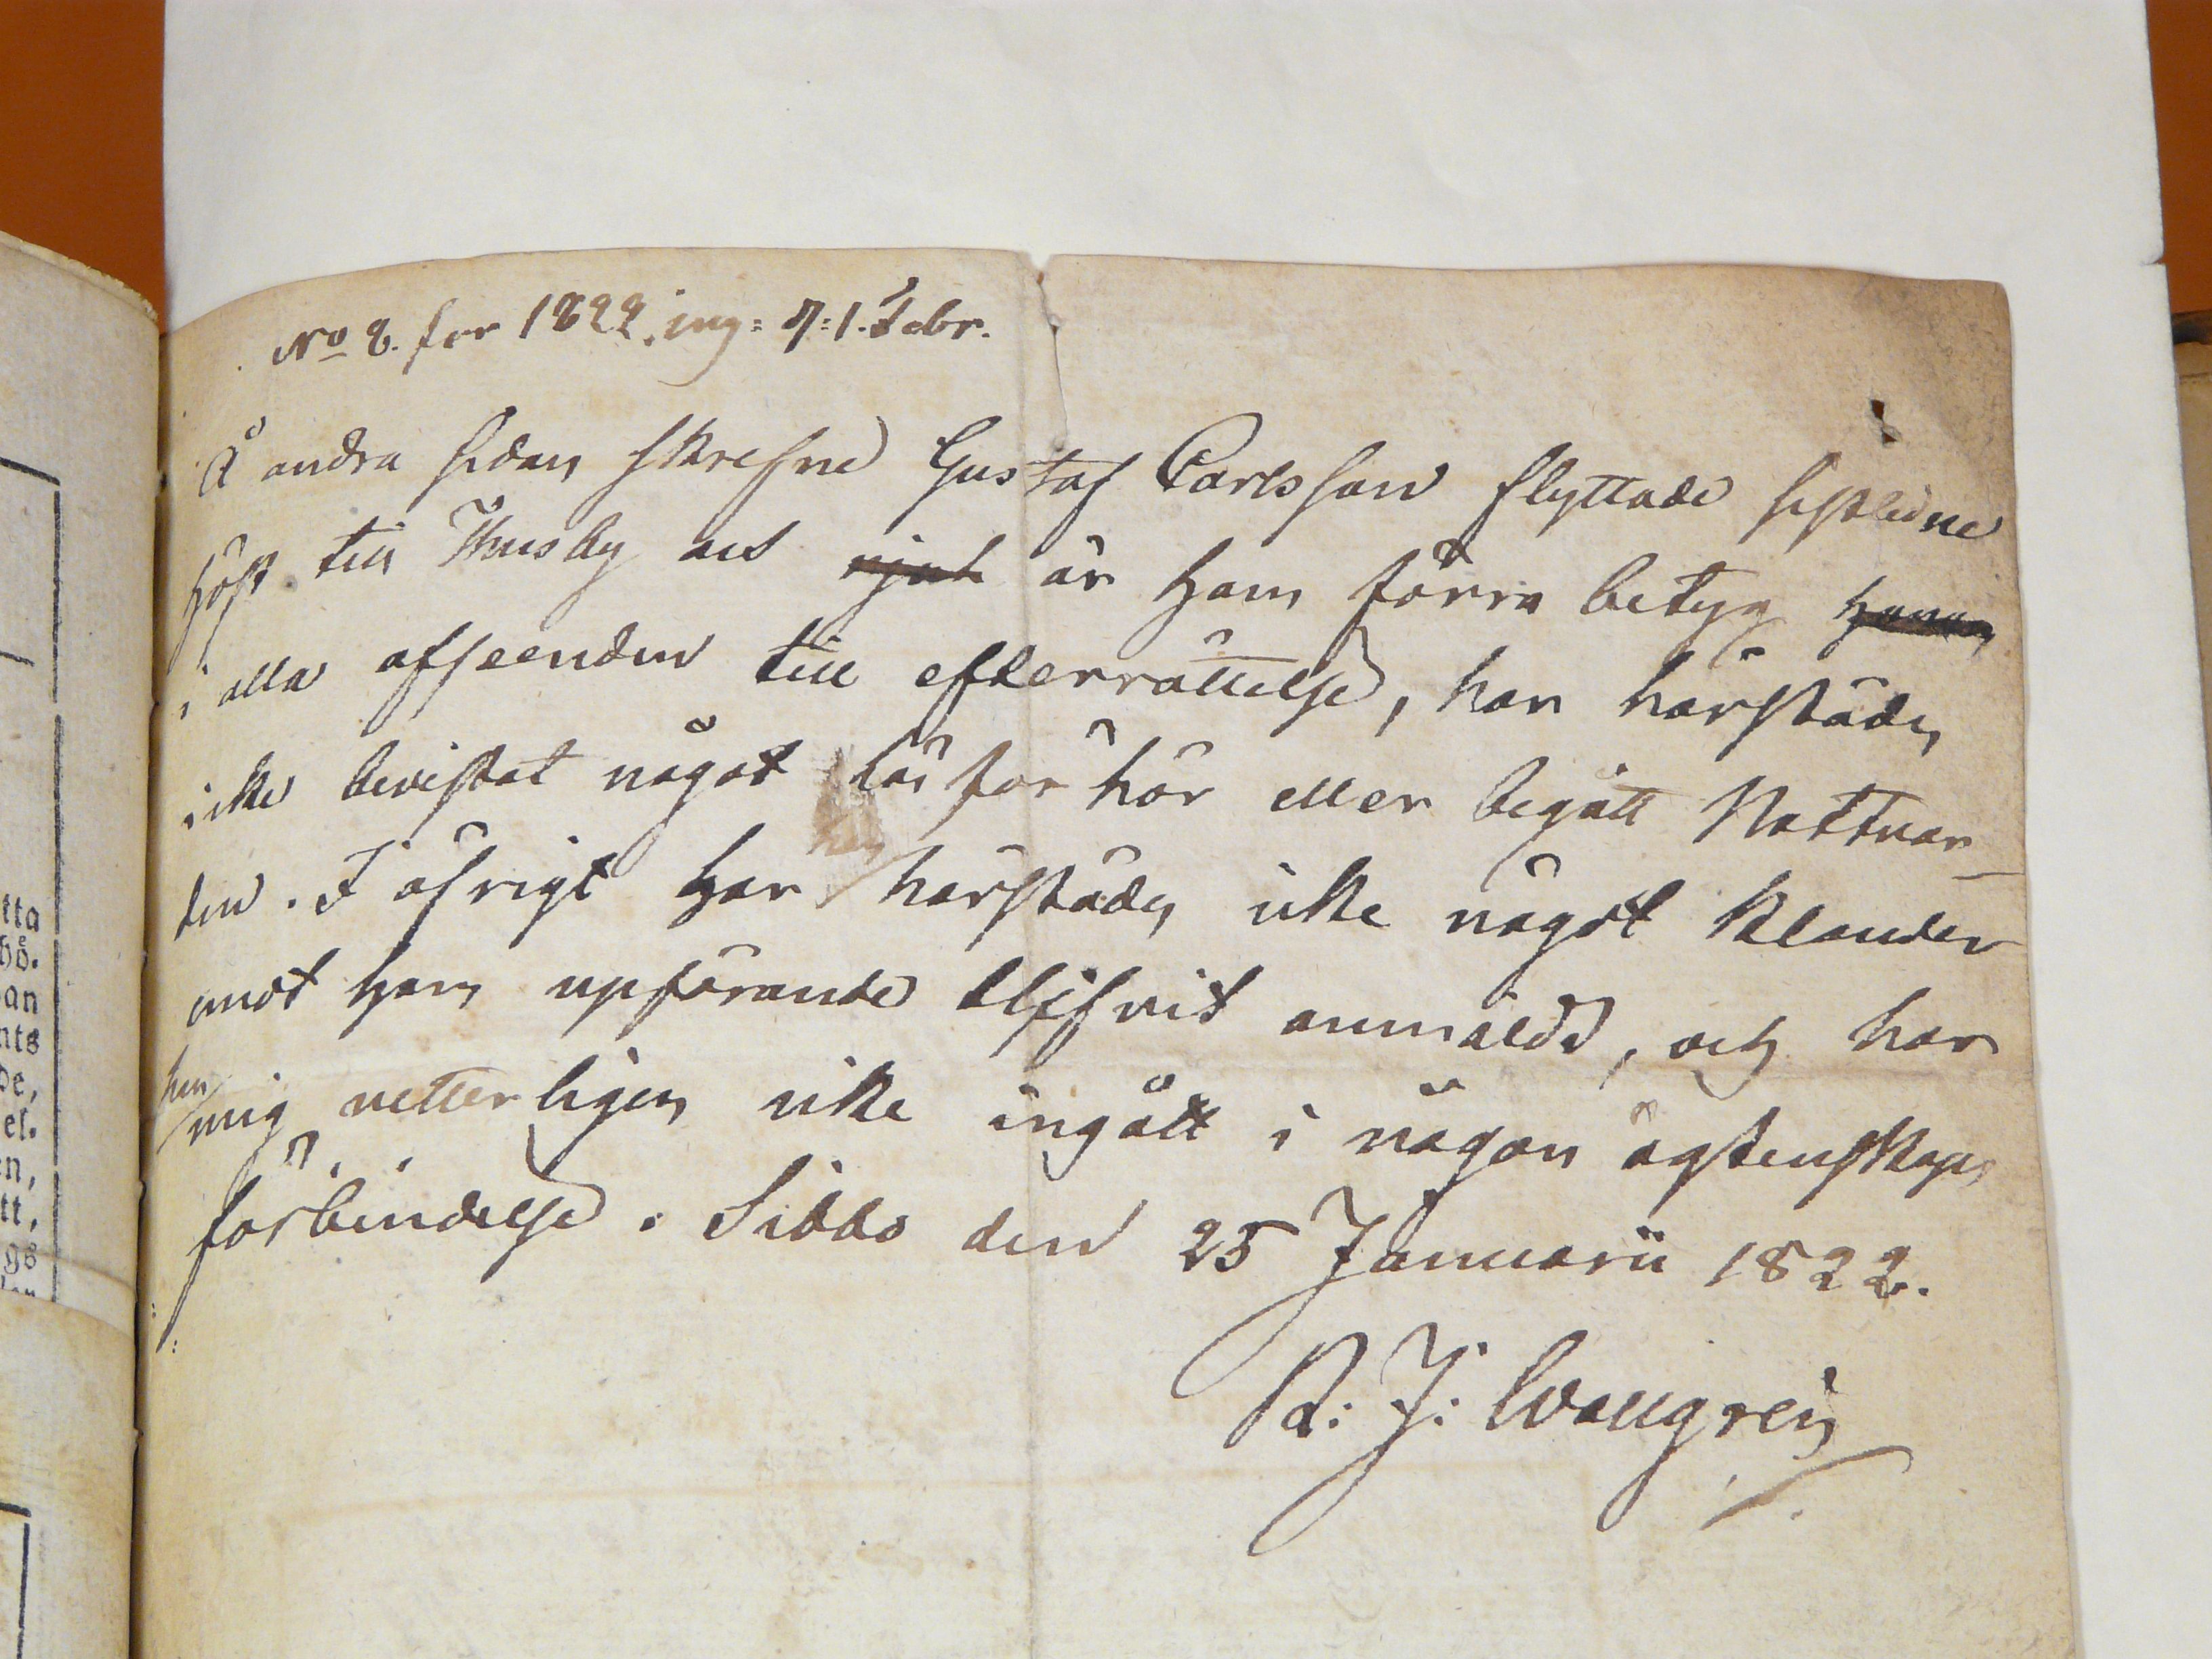 No 8. for 1822. ing: d: 1. Febr.
Å andra sidan skrefne Gustaf Carlsson flyttade sistledne
höst till Thusby och är hans förra betyg
i alla afseenden till efterrättelse, han härstädes
icke bevistat något läsförhör eller begått Nattvar-
den. I öfrigt har härstädes icke något klander
emot hans upförande blifvit anmäldt, och har
han
mig vetterligen icke ingått i någon ägtenskaps
förbindelse. Sibbo den 25 Januarii 1822.
A: J: Wallgrén
tta
hö.
an
nts
de,
el.
en,
tt,
gs